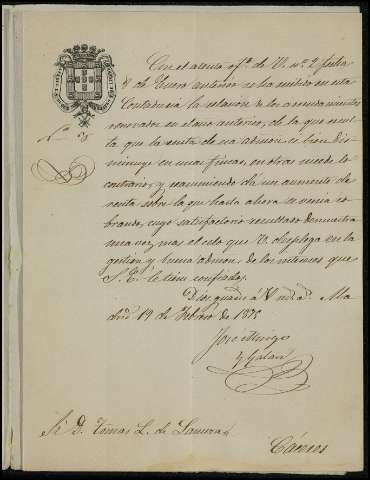 Con el atento of.º de V. nº 2 fecha
8 de Enero anterior se ha recibido en esta
Contaduria la relacion de los arrendamientos
renovados en el año anterior, de la que resul-
ta que la renta de esa admon. si bien dis-
minuye en unas fincas, en otras sucede lo
contrario, y reasumiendo dá un aumento de
renta sobre la que hasta ahora se venia co-
brando, cuyo satisfactorio resultado demuestra
una vez mas el celo que V. desplega en la
gestion y buena admon. de los intereses que
S. E. le tiene confiados.
Dios guarde á V. Ma-
drid 19 de Febrero de 1875
José
y Galan
Sr. D. Tomas L. de
Cáceres